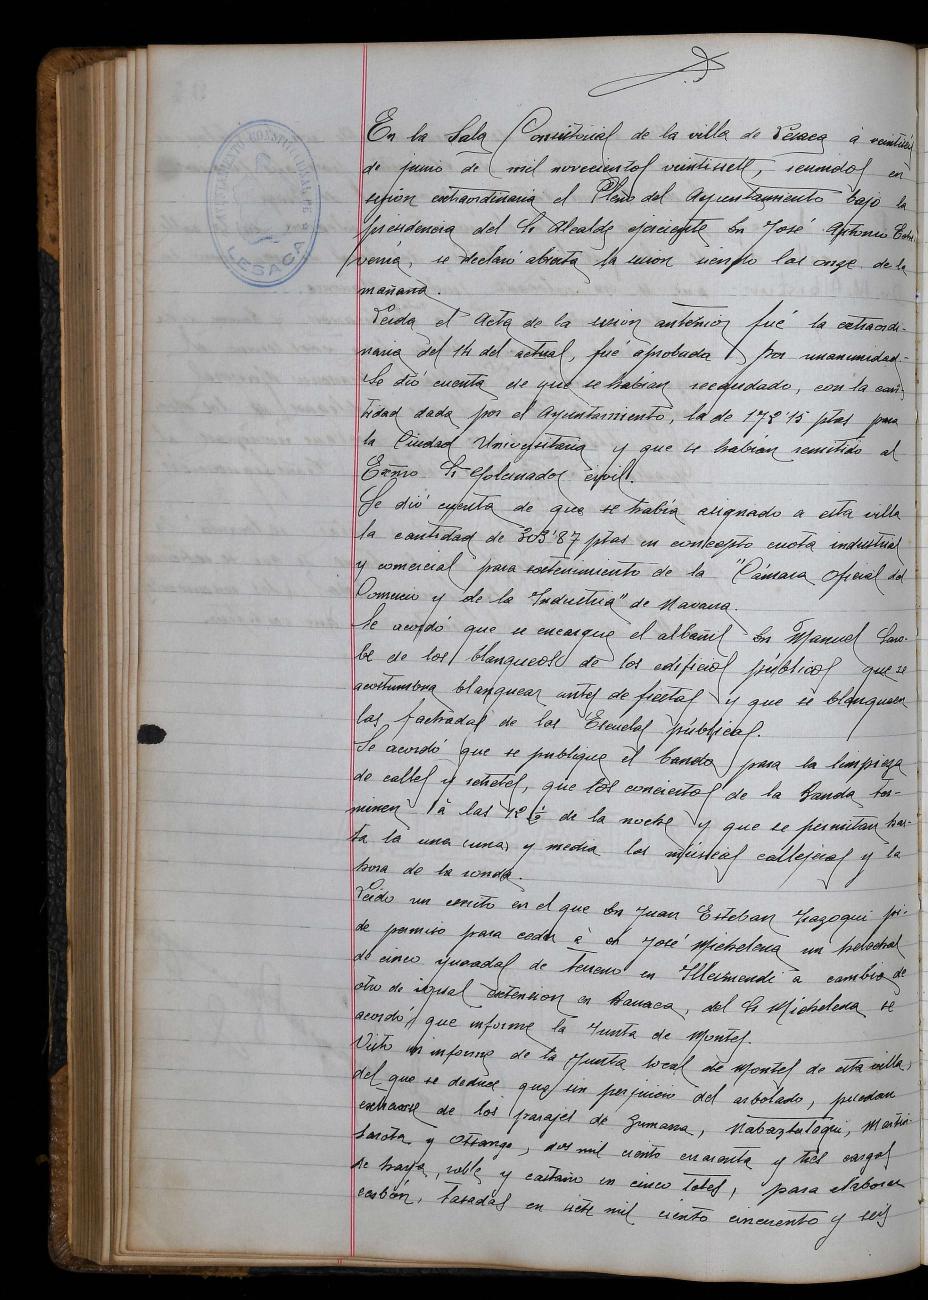 AYUNTAMIENTO CONSTITUCIONAL DE
LESACA
En la Sala Consistorial de la villa de Lesaca á
de junio de mil novecientos veintisiete, reunidos en
sesión extraordinaria el Pleno del Ayuntamiento bajo la
presidencia del Sr Alcalde ejerciente Dn José Antonio
se declaró abierta la sesion siendo las onze de la
mañana.
Leida el Acta de la sesion anterior fué la extraordi-
naria del 14 del actual, fué aprobada por unanimidad-
Se dió cuenta de que se habian recaudado, con la can-
tidad dada por el Ayuntamiento, la de ptas para
la Ciudad Universitaria y que se habian remitido al
Exmo Sr Gobernador civil.
Se dió cuenta de que se habia asignado a esta villa
la cantidad de 303'87 ptas en concepto cuota industrial
y comercial para sostenimiento de la "Cámara Oficial del
Comercio y de la Industria" de Navarra.
Se acordó que se encargue el albañil Dn Manuel
de los blanqueos de los edificios públicos que se
acostumbra blanquear antes de fiestas y que se blanqueen
las fachadas de las Escuelas públicas.
Se acordó que se publique el bando para la limpieza
de calles y retretes, que los conciertos de la Banda ter-
minen á las 12 ½ de la noche y que se permitan has-
ta la una (una) y media las músicas callejeras y la
hora de la ronda.
Leido un escrito en el que Dn Juan Esteban Irazoqui pi-
de permiso para ceder á Dn José Michelena un helechal
de cinco yugadas de terreno en a cambio de
otro de igual extension en del Sr Michelena se
acordó que informe la Junta de Montes.
Visto un informe de la Junta local de Montes de esta villa,
del que se deduce que sin perjuicio del arbolado, puedan
extraerse de los parajes de
y dos mil ciento cuarenta y tres cargas
de haya, roble y castaño en cinco lotes, para elaborar
carbón, tasadas en siete mil ciento cincuenta y seis